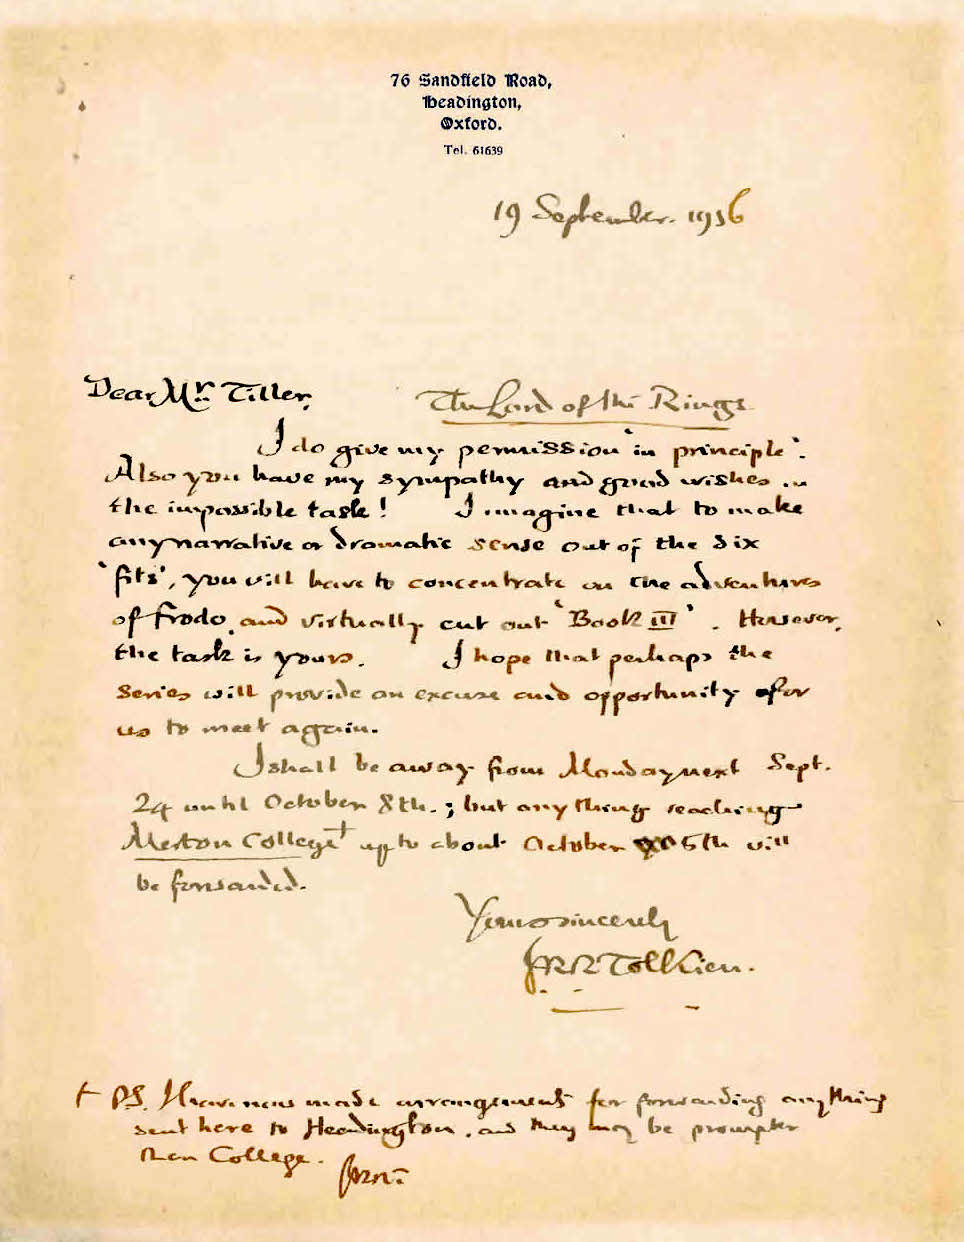 76 Sandfield Road,
Headington,
Oxford.
Tel. 61639
19 September. 1956
Dear Mr. Tiller,
The Lord of the Rings
I do give my permission 'in principle'.
Also you have my sympathy and good wishes in
the impossible task! I imagine that to make
any narrative or dramatic sense out of the six
'fits', you will have to concentrate on the adventures
of Frodo, and virtually cut out 'Book III'. However,
the task is yours. I hope that perhaps the
series will provide an excuse and opportunity for
us to meet again.
I shall be away from Monday next Sept.
24 until October 8th.; but anything reaching
Merton College† up to about October 5th will
be forwarded.
Yours sincerely
JRR Tolkien.
† PS. I have now made arrangements for forwarding anything
sent here to Headington, and they may be prompter
than College. JRRT.